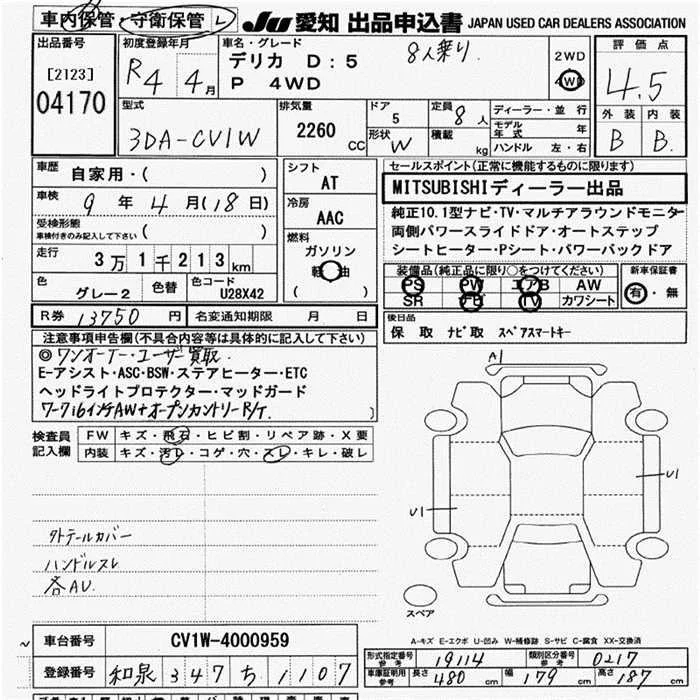 車内保管・守衛保管 L JU愛知 出品申込書 JAPAN USED CAR DEALERS ASSOCIATION
出品番号 [2123] 04170
初度登録年月 R4 4月
車名・グレード デリカ D:5 8人乗り
P 4WD
2WD 4WD
評価点 4.5
外装 内装
B B.
型式 3DA-CV1W
排気量 2260 CC
ドア 5
形状 W
定員 8人
積載 kg
ディーラー・並行
モデル年式 年
ハンドル 左・右
車歴 自家用・( )
車検 9年4月(18日)
受検形態 車検付きのみ記入して下さい ( )
走行 3万1千213km
色 グレー2 色替 色コード U28X42
シフト AT
冷房 AAC
燃料 ガソリン
軽油
( )
セールスポイント(正常に機能するものに限ります)
MITSUBISHIディーラー出品
純正10.1型ナビ・TV・マルチアラウンドモニター
両側パワースライドドア・オートステップ
シートヒーター・Pシート・パワーバックドア
装備品(純正品に限り○をつけてください)
PS PW エアB AW
SR ナビ TV カワシート
新車保証書
有・無
R券 13750円 名変通知期限 月 日
後日品
保 取 ナビ取 スペアスマートキー
注意事項申告欄(不具合内容等は具体的に記入して下さい)
◎ワンオーナー・ユーザー買取
E-アシスト・ASC・BSW・ステアヒーター・ETC
ヘッドライトプロテクター・マッドガード
ワーク16インチAW+オープンカントリーR/T.
検査員記入欄
FW キズ・飛石・ヒビ割・リペア跡・X要
内装 キズ・汚レ・コゲ・穴・スレ・キレ・破レ
外テールカバー
ハンドルスレ
各AU.
A1
U1
U1
スペア
A-キズ E-エクボ U-凹み W-補修跡 S-サビ C-腐食 XX-交換済
車台番号 CV1W-4000959
登録番号 和泉 347 ち 1107
形式指定番号 参考 19114 類別区分番号 参考 0217
車庫証明用 参考 長さ 480cm 幅 179cm 高さ 187cm